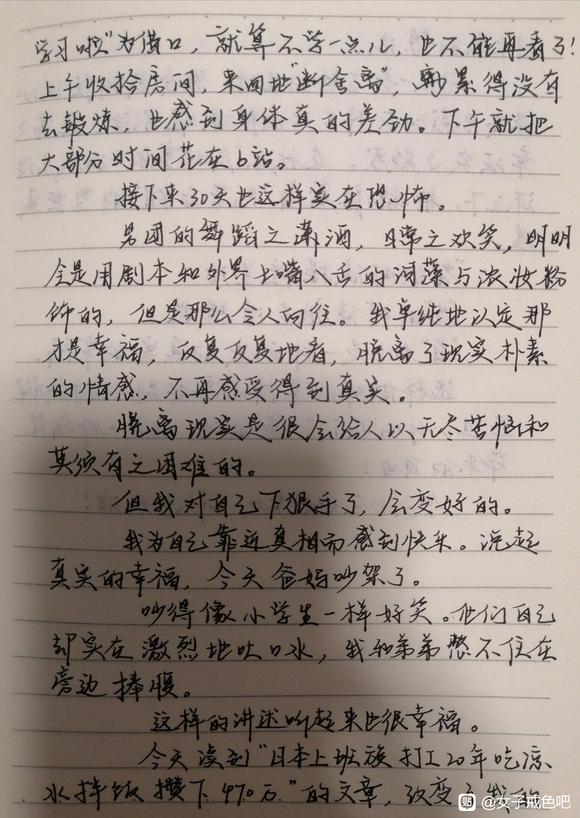 学习啦”为借口，就算不学一点儿，也不能再看了！
上午收拾房间，来回地“断舍离”，累得没有
去锻炼，也感到身体真的差劲。下午就把
大部分时间花在b站。
接下来30天也这样实在恐怖。
男团的舞蹈之潇洒，日常之欢笑，明明
全是用剧本和外界七嘴八舌的词藻与浓妆粉
饰的，但是那么令人向往。我单纯地认定那
才是幸福，反复反复地看，脱离了现实朴素
的情感，不再感受得到真实。
脱离现实是很会给人以无尽苦恼和
莫须有之困难的。
但我对自己下狠手了，会变好的。
我为自己靠近真相而感到快乐。说起
真实的幸福，今天爸妈吵架了。
吵得像小学生一样好笑。他们自己
却实在激烈地吐口水，我和弟弟憋不住在
旁边捧腹。
这样的讲述听起来也很幸福。
今天读到“日本上班族打工20年吃凉
水拌饭攒下470万”的文章，改变了我的
贴 @女子戒色吧